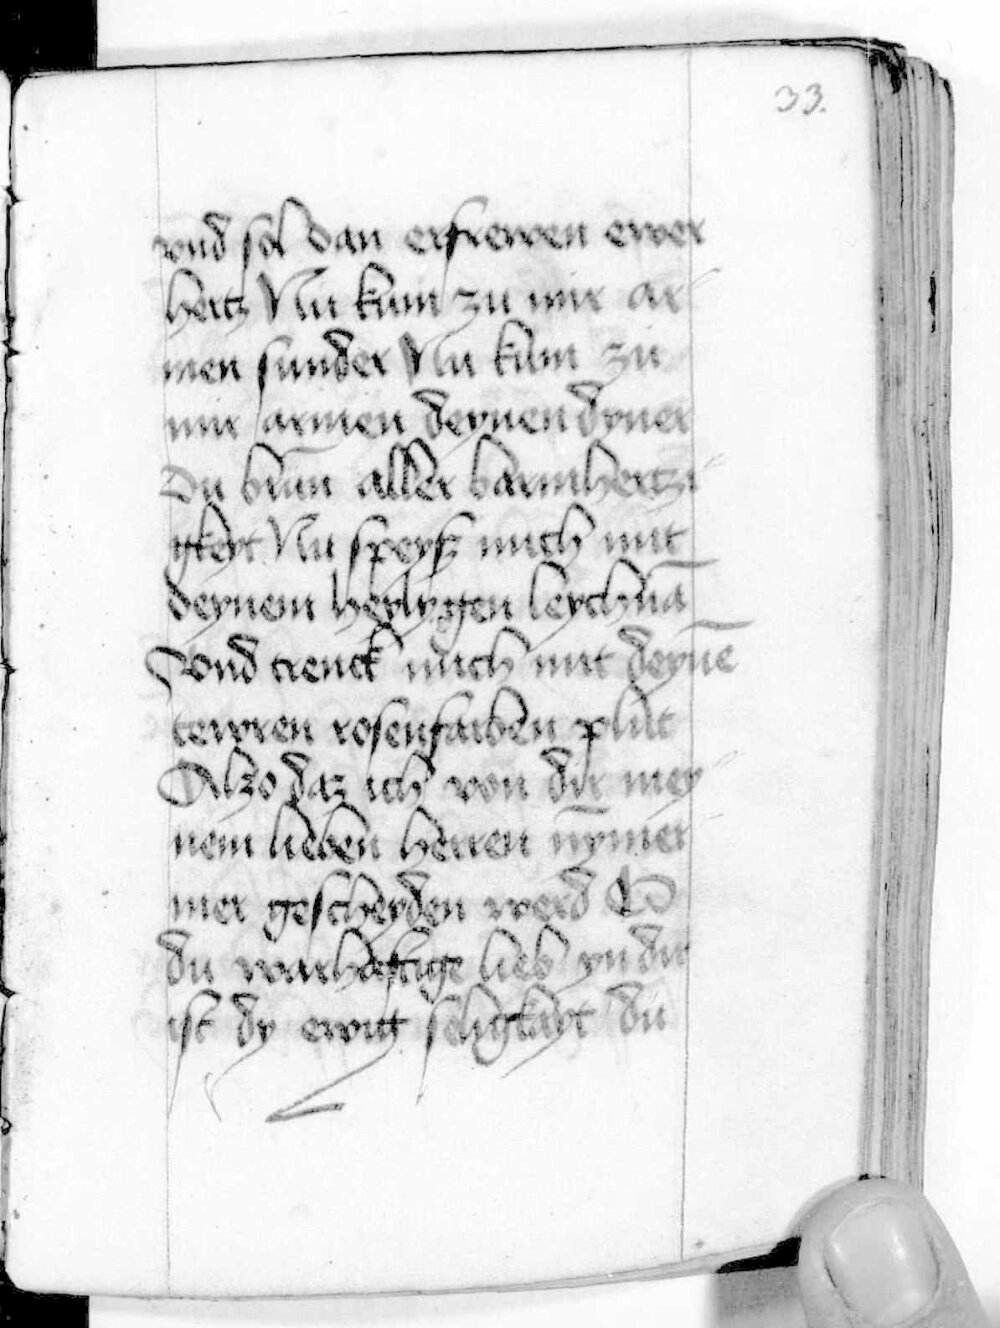 33.
vnd sol dan erfrewen ewer
hertz Nu kum zu mir ar
men sunder Nu kum zu
mir armen deynen dyner
Du brun aller barmhertzi
gkeyt Nu speysz mich mit
deynem heylygen leychnã
Vnd trenck mich mit deynẽ
tewren rosenfarben plut
Alzo daz ich von dir mey
nem lieben herren nȳmer
mer gescheyden werd O
du warhaftige lieb yn dir
ist dy ewig seligkayt du